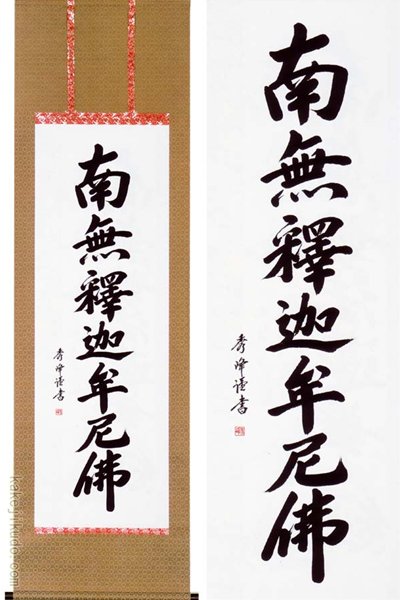 南無釋迦牟尼佛
秀峰謹書
南無釋迦牟尼佛
秀峰謹書
kakejikudo.com